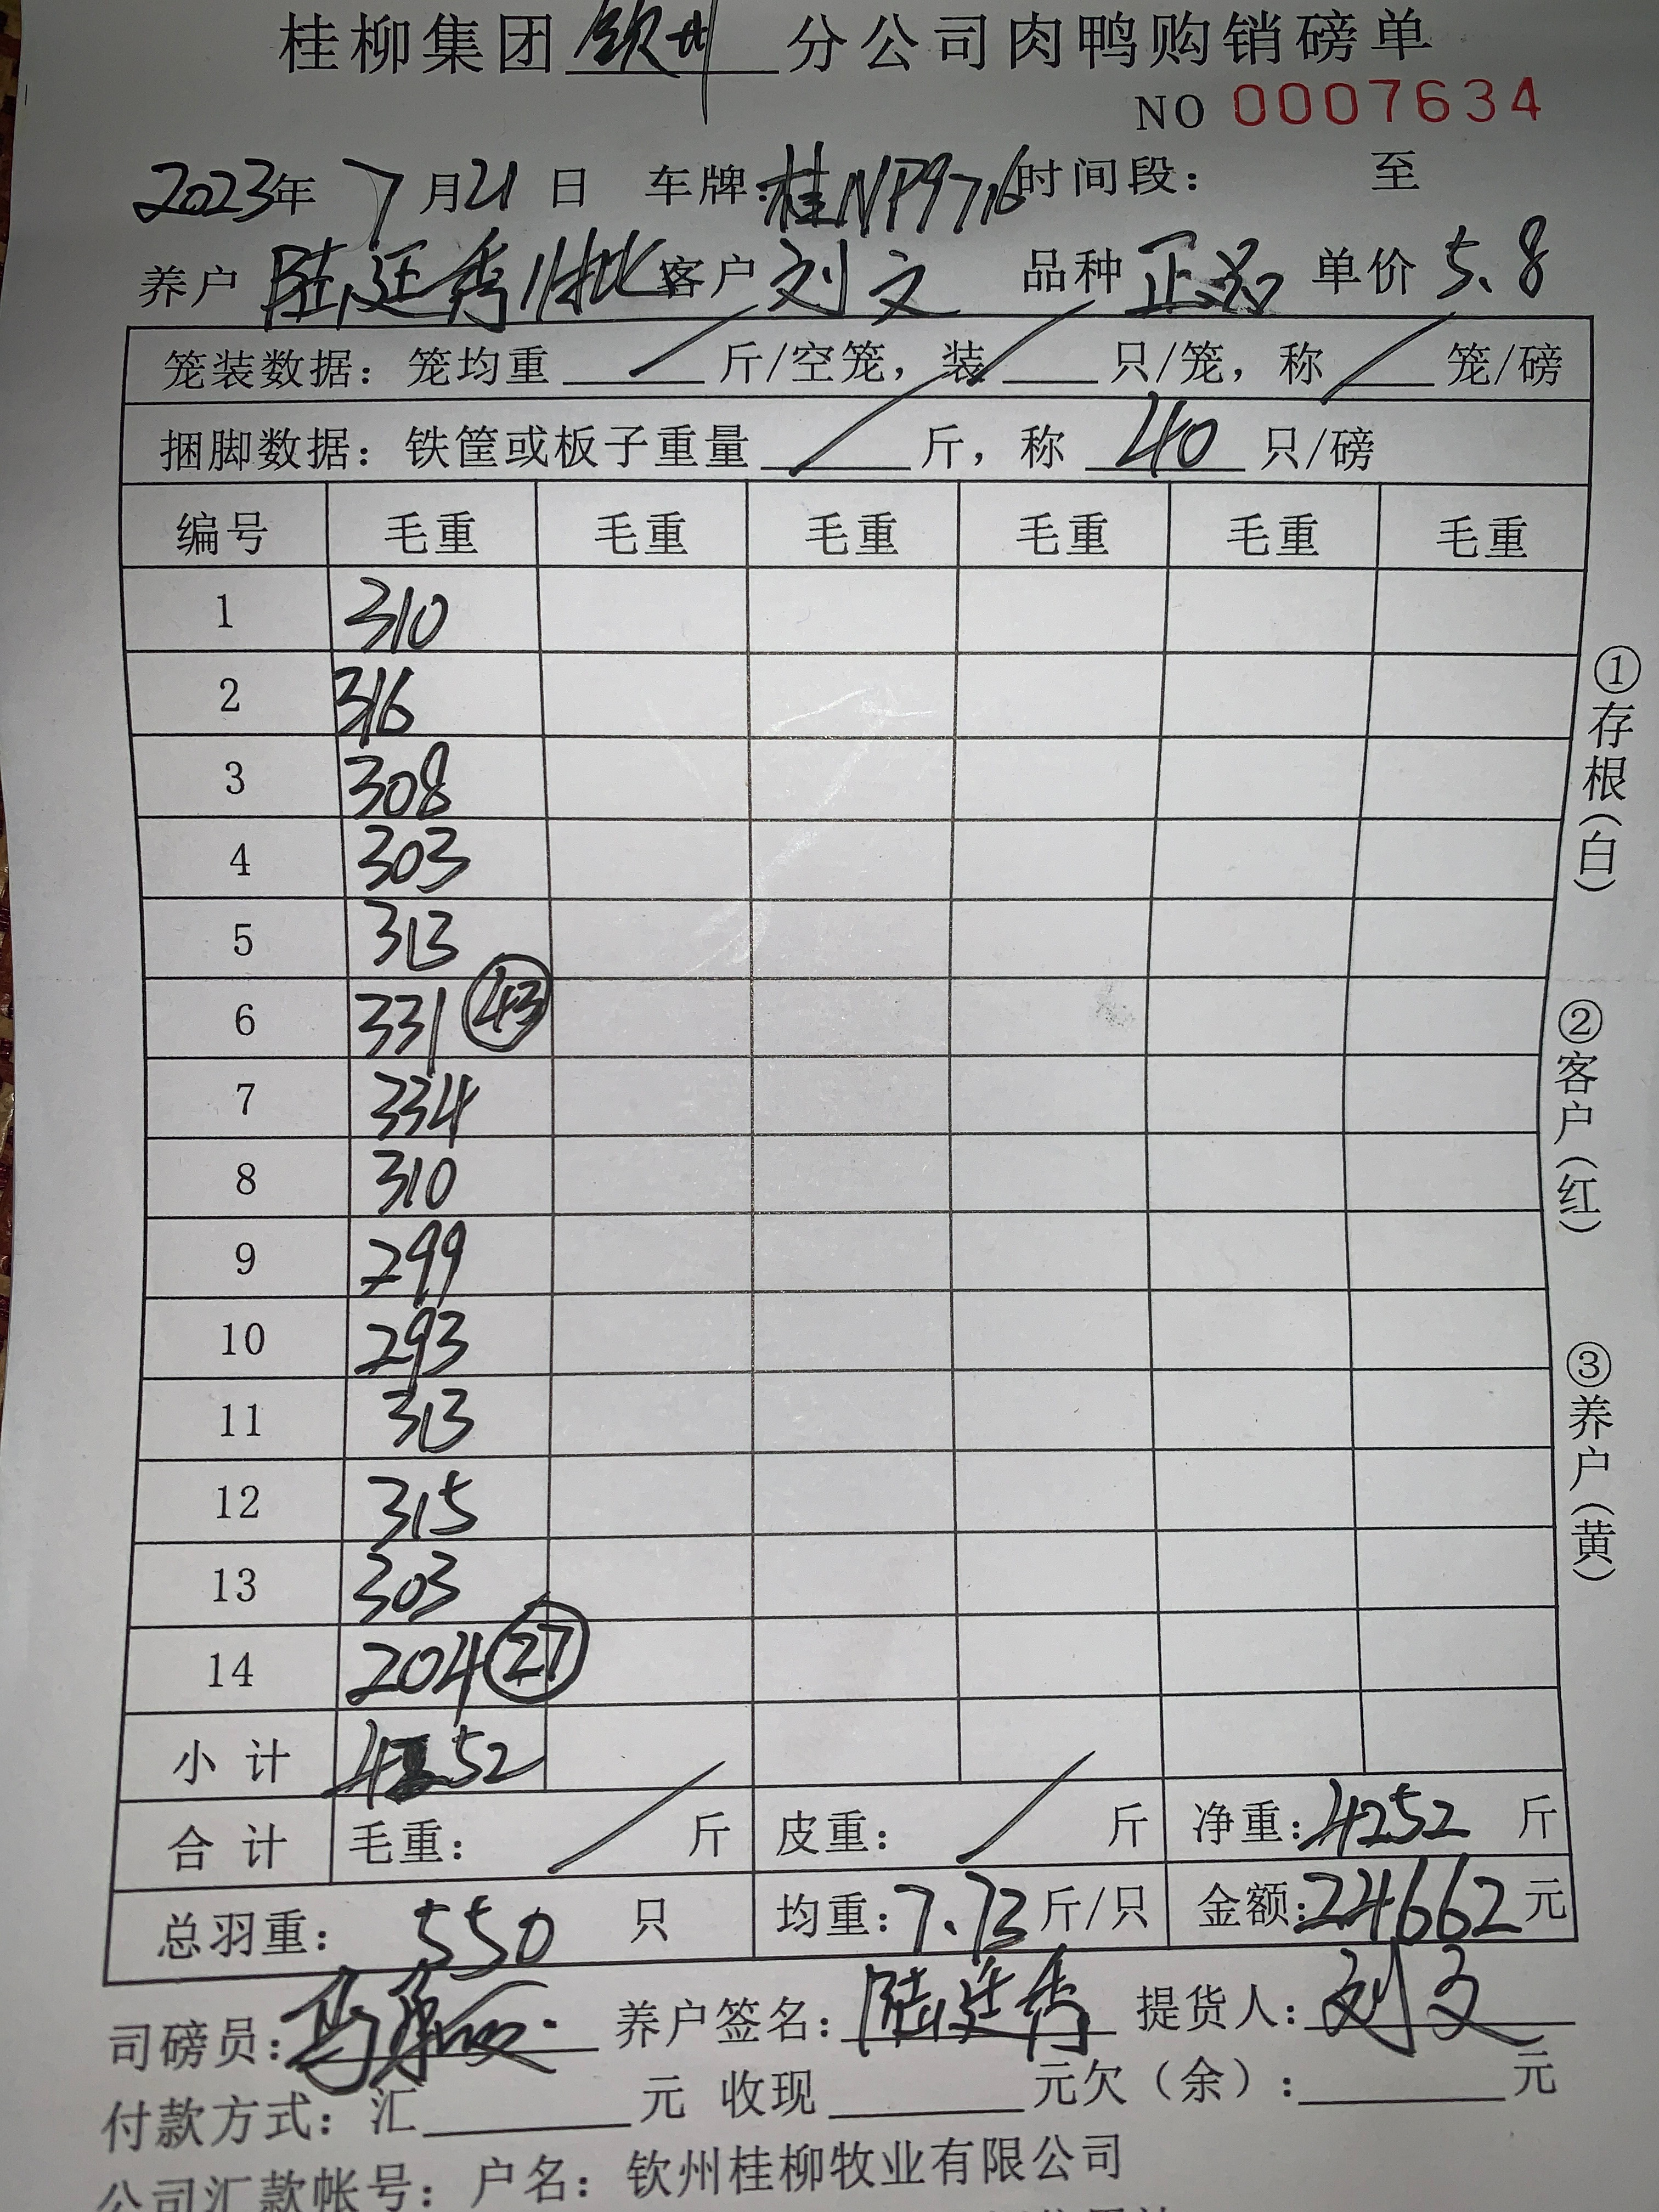 桂柳集团钦州分公司肉鸭购销磅单
NO 0007634
2023年 7月21日 车牌:桂NP9716 时间段: 至
养户 陆廷秀1批 客户 刘文 品种 正品 单价 5.8
笼装数据: 笼均重 / 斤/空笼, 装 / 只/笼, 称 / 笼/磅
捆脚数据: 铁筐或板子重量 / 斤, 称 40 只/磅
编号 毛重 毛重 毛重 毛重 毛重 毛重
1 310
2 316
3 308
4 303
5 313
6 331 43
7 334
8 310
9 299
10 293
11 313
12 315
13 303
14 204 27
小计 4252
合计 毛重: / 斤 皮重: / 斤 净重: 4252 斤
总羽重: 550 只 均重: 7.73 斤/只 金额: 24662 元
司磅员: 养户签名: 陆廷秀 提货人: 刘文
付款方式: 汇 元 收现 元欠(余): 元
公司汇款帐号: 户名: 钦州桂柳牧业有限公司
①存根(白)
②客户(红)
③养户(黄)